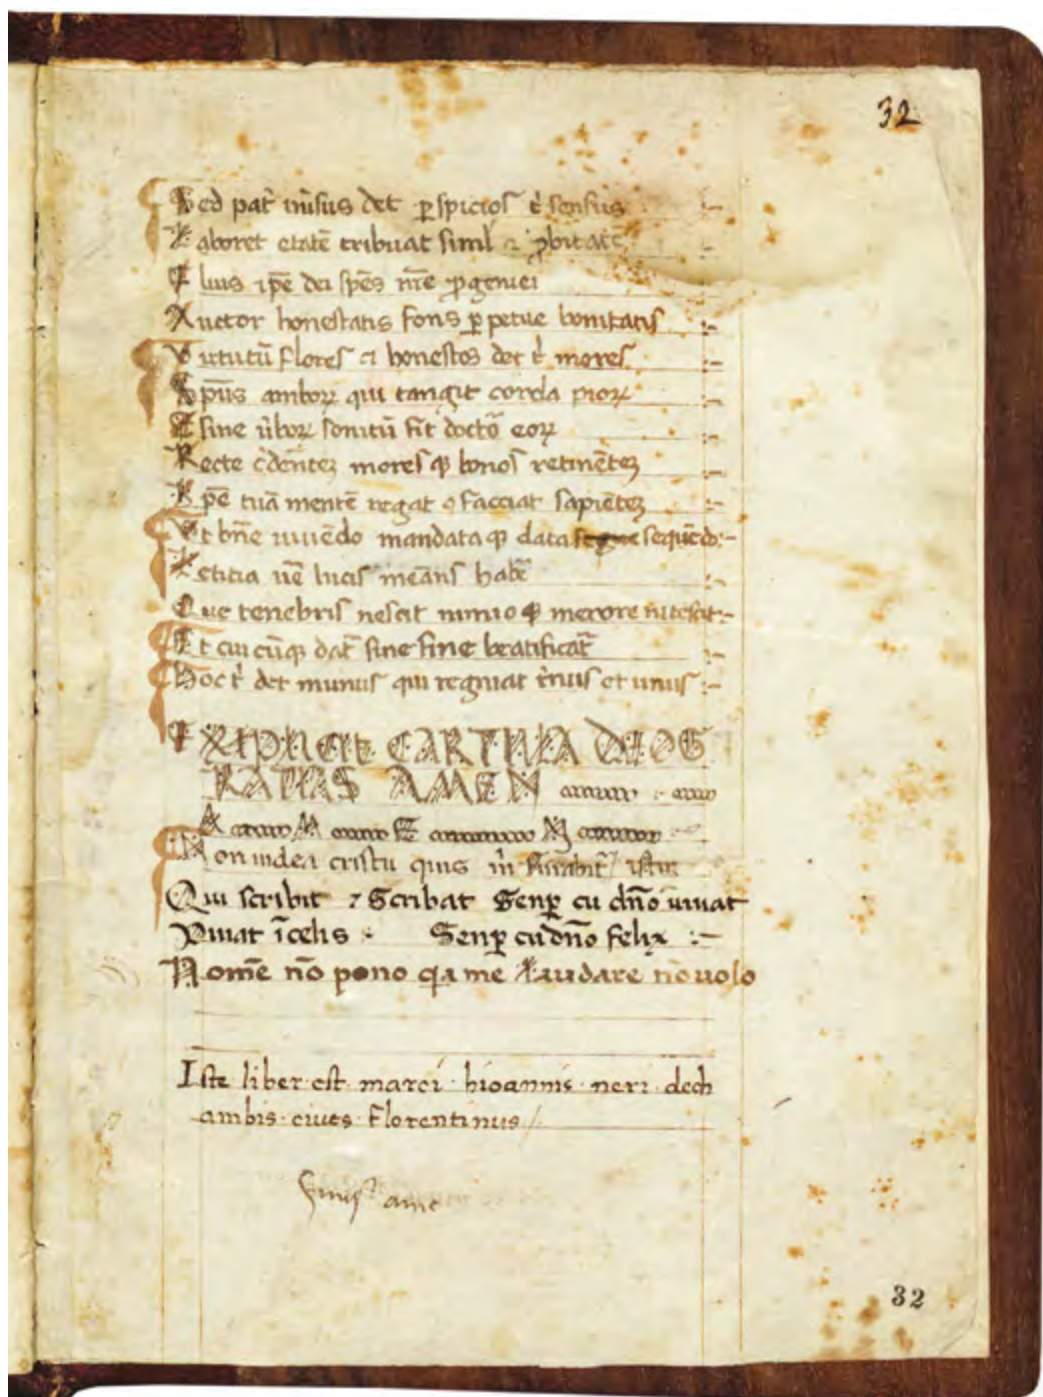 32
Sed pat̄ inīsus det ꝑspicios t̄ sensus
Laboret etatē tribuat siml̄ ⁊ ꝓbitatē
Filius ipē dei spēs nr̄e ꝓgeniei
Auctor honestatis fons ꝑpetue bonitatis
Virtutū flores ⁊ honestos det t̄ mores
Sp̄us amboꝝ qui tangit corda pioꝝ
Et sine v̄boꝝ sonitū fit doctō eoꝝ
Recte c̄dentez mores qȝ bonos retinētez
Ip̄e tuā mentē regat ⁊ facciat sapiētez
Ut bn̄e vivēdo mandata qȝ data sequēdo
Letitia uē lucis means habē
Que tenebris nescit nimio qȝ merore nitescit
Et cui cūqȝ dat̄ sine fine beatificat̄
Hoc t̄ det munus qui regnat t̄nus et unus
EXIPLICIT CARTULA DEO G
RATIAS AMEN
A M E N
Non videa cristu quis m̄
Qui scribit ⁊ Scribat Senꝑ cu dn̄o vivat
Vivat ī celis Senꝑ cu dn̄o felix
Nomē nō pono qa me Laudare nō volo
Iste liber est marci hioannis neri dech
ambis cives florentinus
finis ame
32